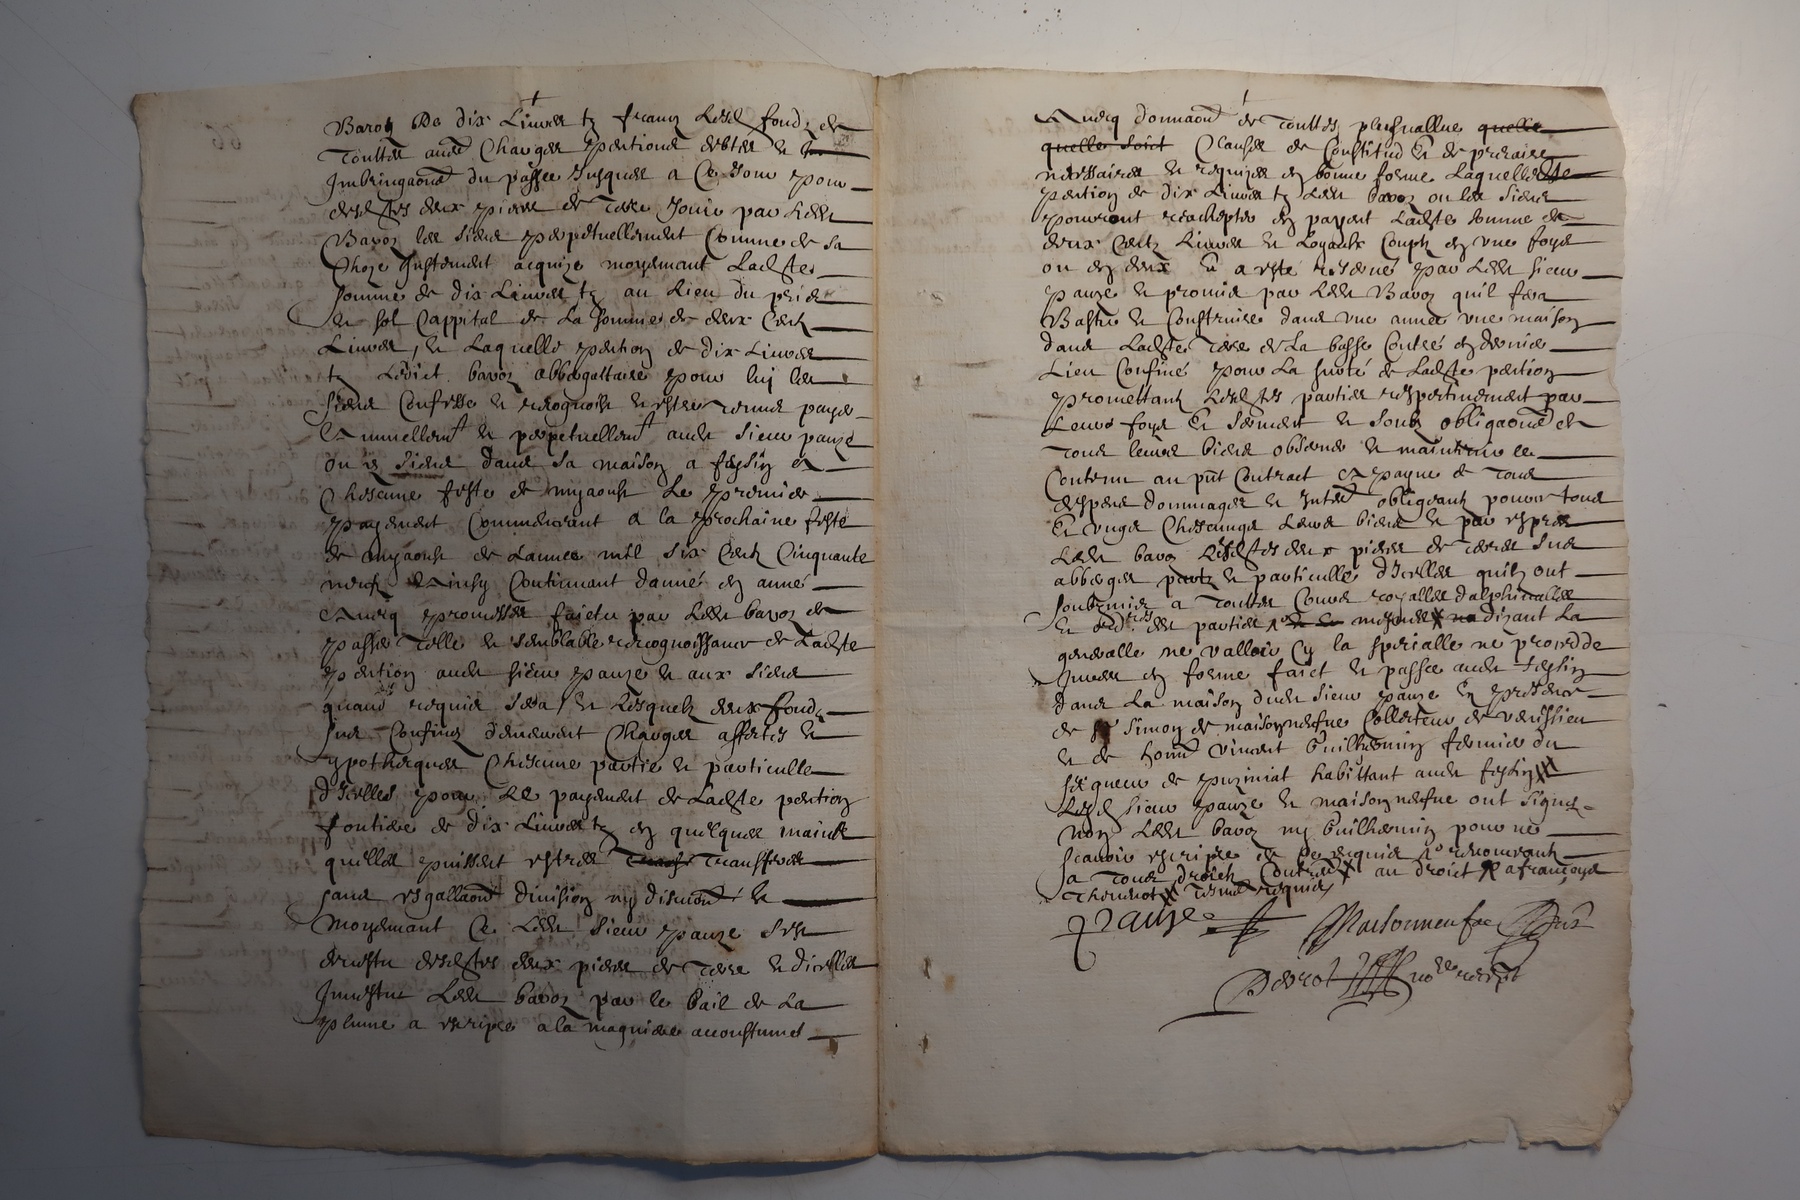 Baroz de dix Livres tz francz Lesd fondz de
touttes aues Charges pentions debtes et
Imbringaons du passee Jusques a Ce Jour pour
desdites deux pieces de terre Jouir par Ledt
Baroz les siens perpetuellement Comme de sa
Choze Justement acquize moyenant Ladite
somme de dix Livres tz au Lieu du prix
et sol Cappital de La somme de deux Centz
Livres, et Laquelle pention de dix Livres
tz Ledict baroz abbergattaire pour luy les
siens Confesse et recognoist et estre tenus payer
Annuellemt et perpetuellemt audt sieur pauze
ou es siens dans sa maison a feysin a
Chascune feste de myaoust Le premier
payement Commencant a la prochaine feste
de myaoust de Lannee mil six Centz Cinquante
neufz et ainsy Continuant danné en anné
Avecq promesses faictes par Ledt baroz de
passer telle et semblable recognoissance de Ladite
pention audt sieur pauze et aux siens
quand requis sera, et Lesquelz deux fondz
sus Confinez demeurent Charges affectes et
ypothecques Chascune partie et particulle
d'Icelles pour Le payement de Ladite pention
fontiere de dix Livres tz en quelques mains
quelles puissent estres transferees
sans esgallaons division ny discuons et
Moyenant Ce Ledt sieur pauze sest
devestu desdites deux pieces de terre et dicelles
Investu Ledt baroz par le bail de La
plume a escripre a la magniere accoustumes
Avecq donnaons de touttes plus vallue quelle
quelle soict Clauses de Constitud et de precaire
necessaires et requizes en bonne forme Laquelle dte
pention de dix Livres tz Ledt baroz ou les siens
pourront reachepter en payant Ladite somme de
deux Centz Livres et Loyaulx Couptz en une foys
ou en deux Et a esté reserve par Ledt sieur
pauze et promis par Ledt Baroz quil fera
Bastir et Construire dans une annee une maison
dans Ladite terre de La basse Contré en dernier
Lieu Confiné pour La surté de Ladite pention
promettantz Lesdites parties respectivement par
Leurs foys Et serment et soubz obligaons de
tous leurs biens observer et maintenir le
Contenu au pnt Contract A payne de tous
despens dommages et Interestz obligeantz pour tous
Et ungs Chescungs Leurs biens et par expres
Ledt baroz Lesdites deux pieces de terres sus
abberges et particulle d'Icelles quilz ont
soubzmis a touttes Cours royalles dalphinalles
et des parties dizant La
generalle ne valloir sy la specialle ne precedde
Jurees en forme faict et passee audt feysin
dans La maison dudt sieur pauze En presence
de Simon de maisonneufve Collecteur de venissieu
et de honn vincent Guilhermin fermier du
seigneur de puziniat habittant audt feysin
Lesd sieur pauze et maisonneufve ont signez
non Ledt baroz ny Guilhermin pour ne
scavoir escripre de Ce requis
sa tous droictz Contract au droict a francoyse
thevenot tesmt requis
Pauze Maisonneufve
Perrot nore recepvt